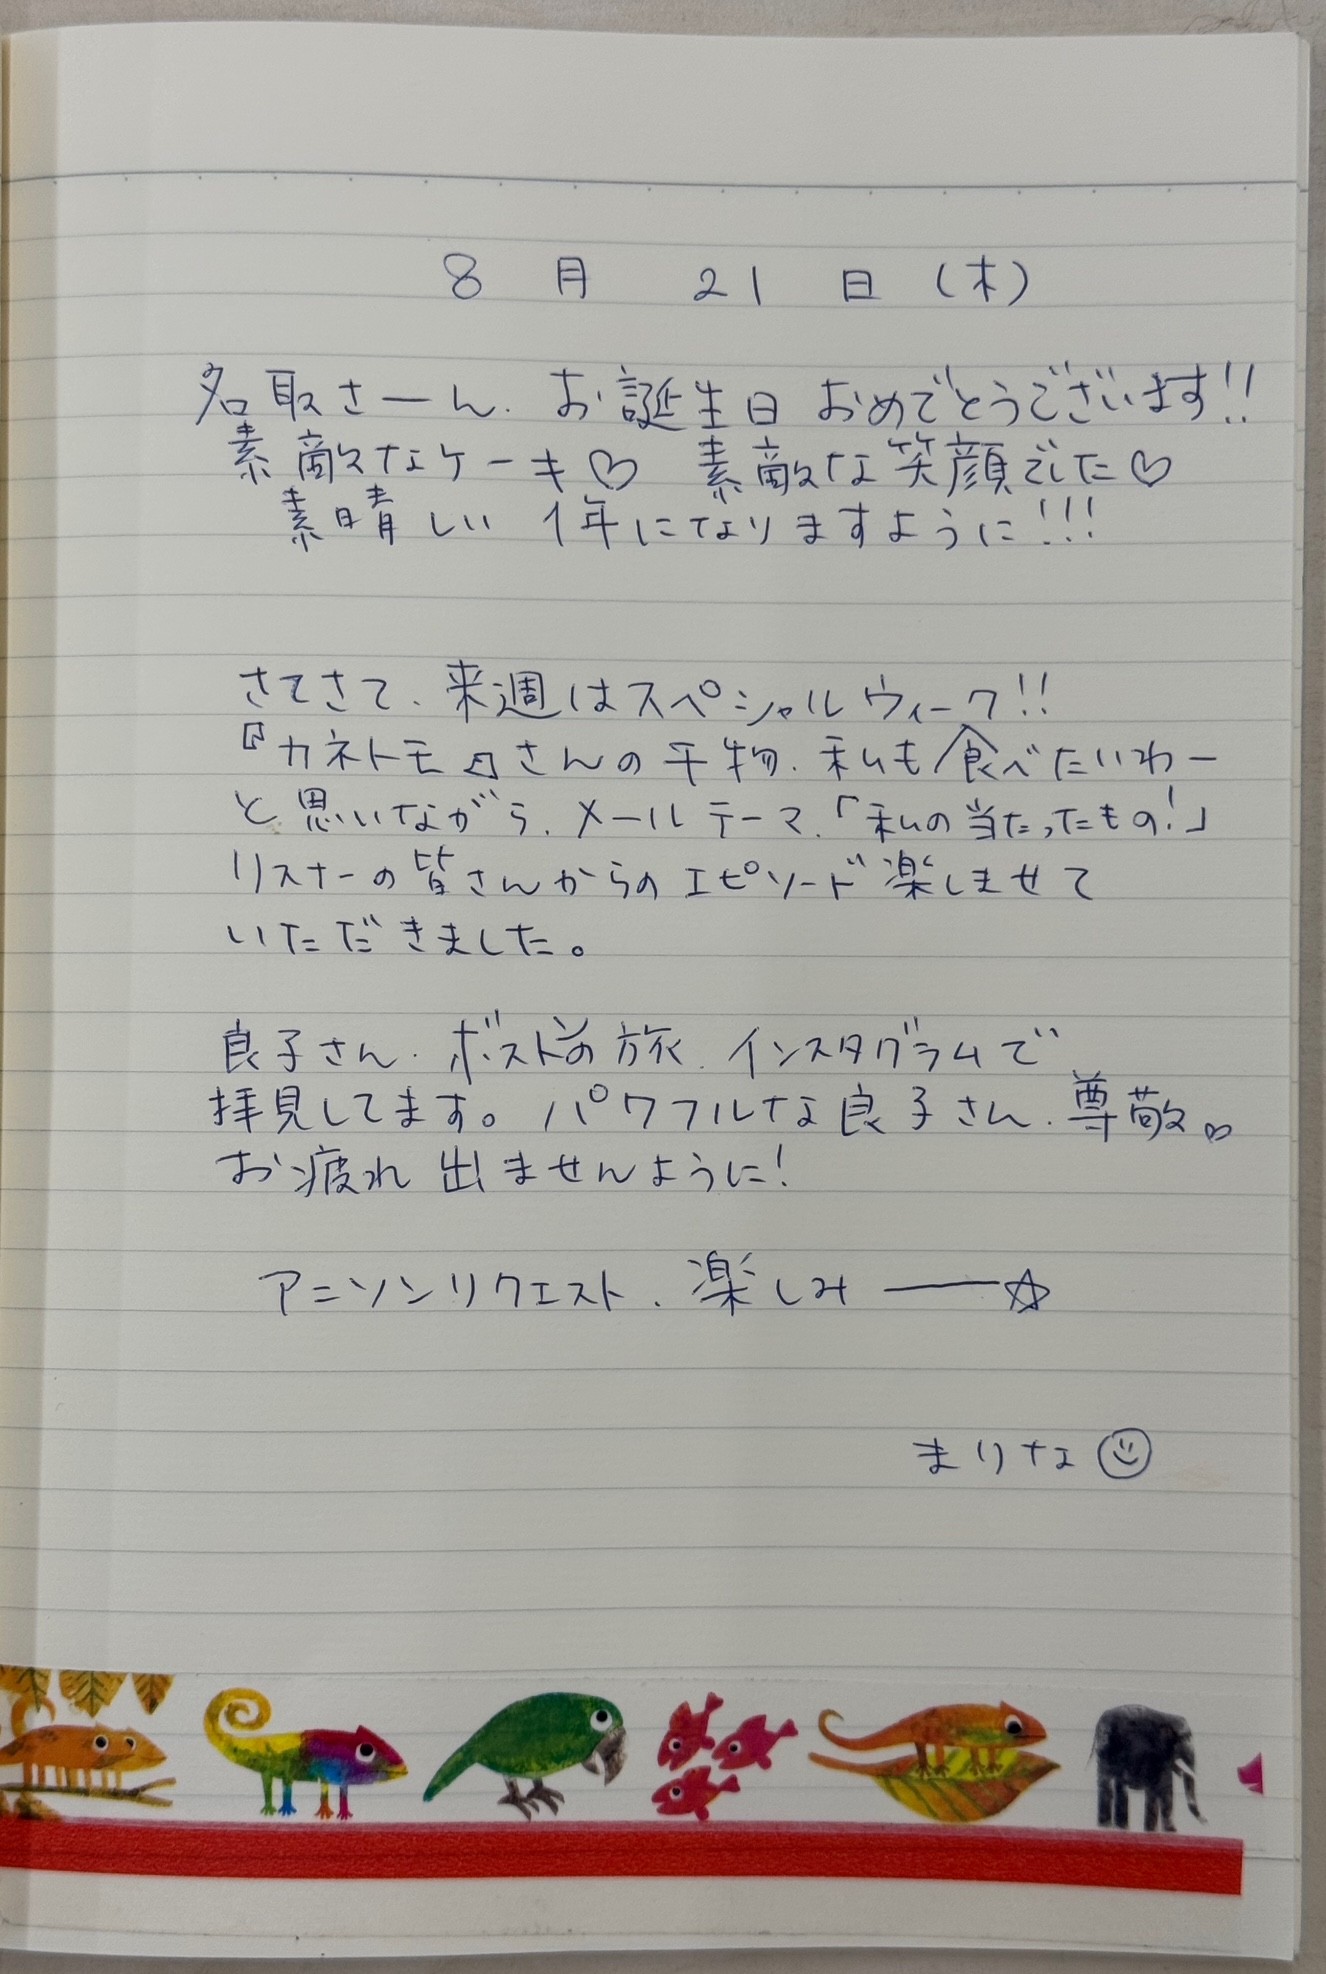 8月 21日(木)
名取さーん、お誕生日おめでとうございます!!
素敵なケーキ♡ 素敵な笑顔でした♡
素晴しい 1年になりますように!!!
さてさて、来週はスペシャルウィーク!!
『カネトモ』さんの干物、私も食べたいわー
と思いながら、メールテーマ、「私の当たったもの!」
リスナーの皆さんからのエピソード楽しませて
いただきました。
良子さん、ポストの旅、インスタグラムで
拝見してます。パワフルな良子さん、尊敬。♡
お疲れ出ませんように!
アニソンリクエスト、楽しみ――☆
まりな☺